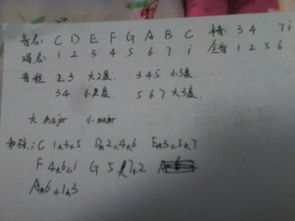 音名: C D E F G A B C 半音: 3 4 7 i
唱名: 1 2 3 4 5 6 7 i 全音 1 2 5 6
音程 1 3 大3度. 3 4 5 小3度.
3 4 小2度. 5 6 7 大3度.
大 major 小 major
和弦: C 1 3 5 Dm 2 4 6 Em 3 5 7
F 4 6 i G 5 7 2
Am 6 1 3